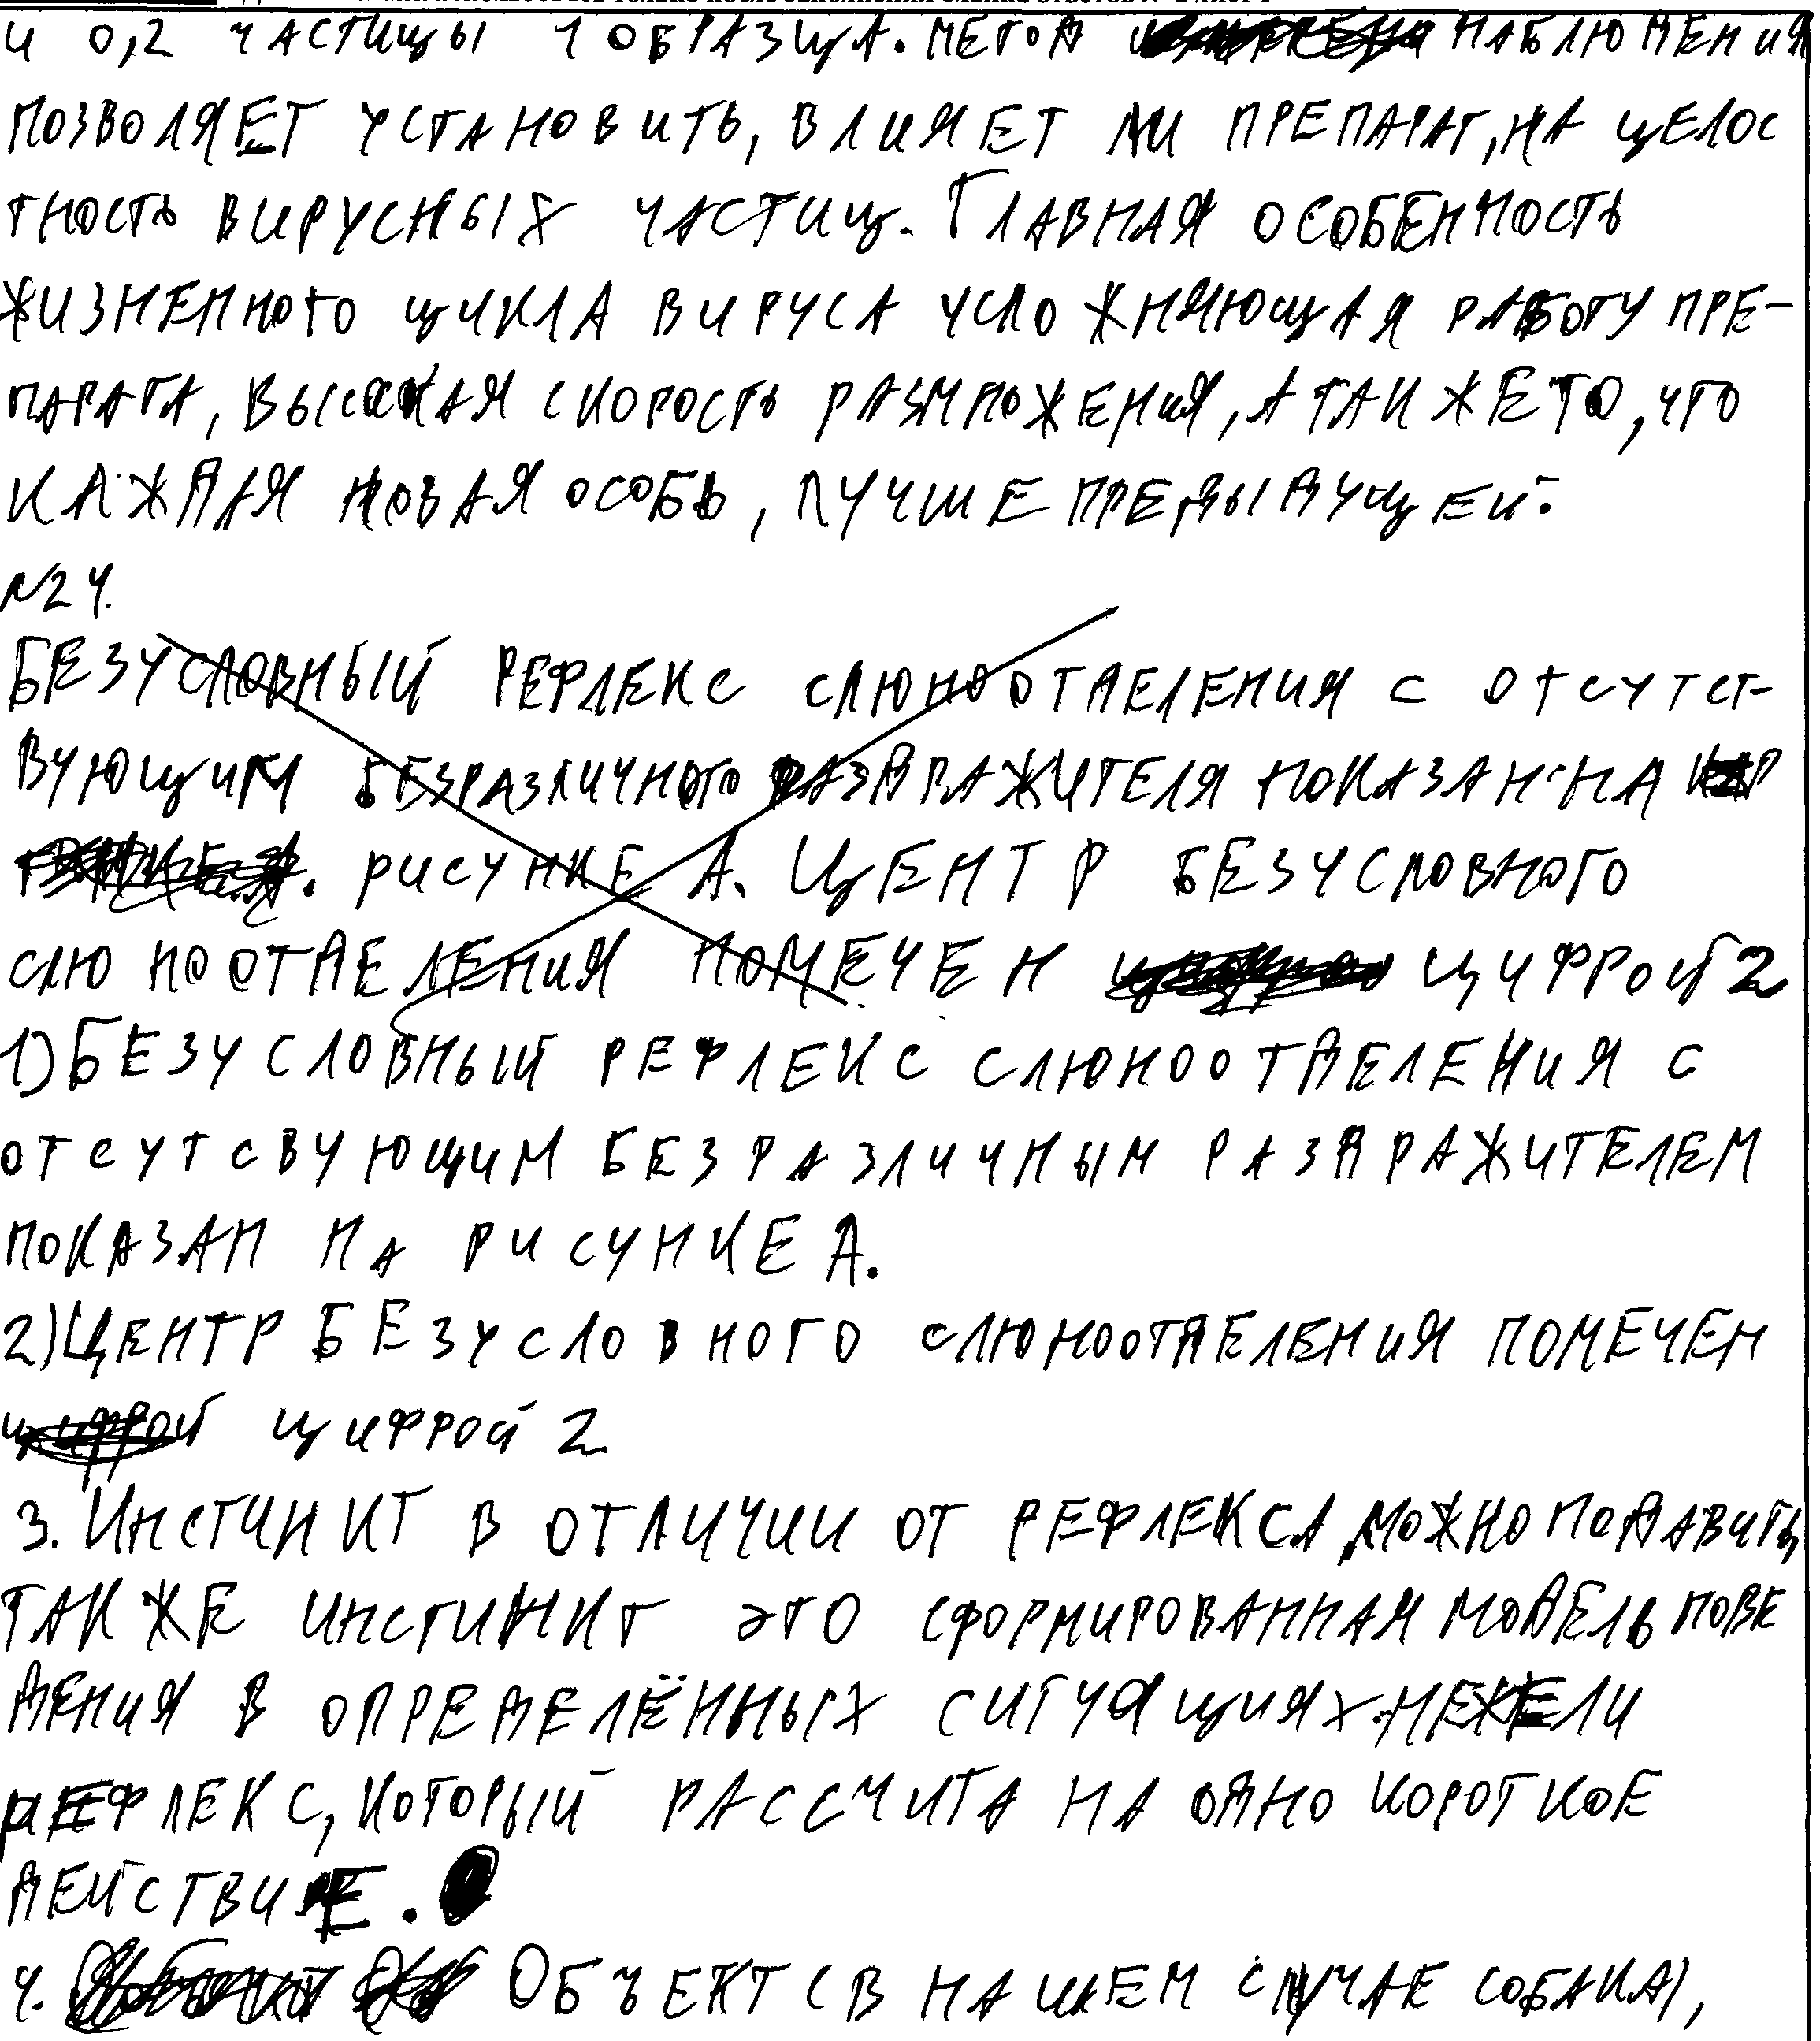 и 0,2 частицы 1 образца. Метод наблюдения
позволяет установить, влияет ли препарат, на целос
тность вирусных частиц. Главная особенность
жизненного цикла вируса усложняющая работу пре-
парата, высокая скорость размножения, а так же то, что
каждая новая особь, лучше предыдущей.
№24.
Безусловный рефлекс слюноотделения с отсутст-
вующим безразличного раздражителя показан на
. рисунке А. Центр безусловного
слюноотделения помечен цифрой 2
1) Безусловный рефлекс слюноотделения с
отсутсвующим безразличным раздражителем
показан на рисунке А.
2) Центр безусловного слюноотделения помечен
цифрой цифрой 2
3. Инстинкт в отличии от рефлекса, можно подавить,
так же инстинкт это сформированная модель пове
дения в определённых ситуациях. нежели
рефлекс, который рассчита на одно короткое
действие.
4. Объект (в нашем случае собака),